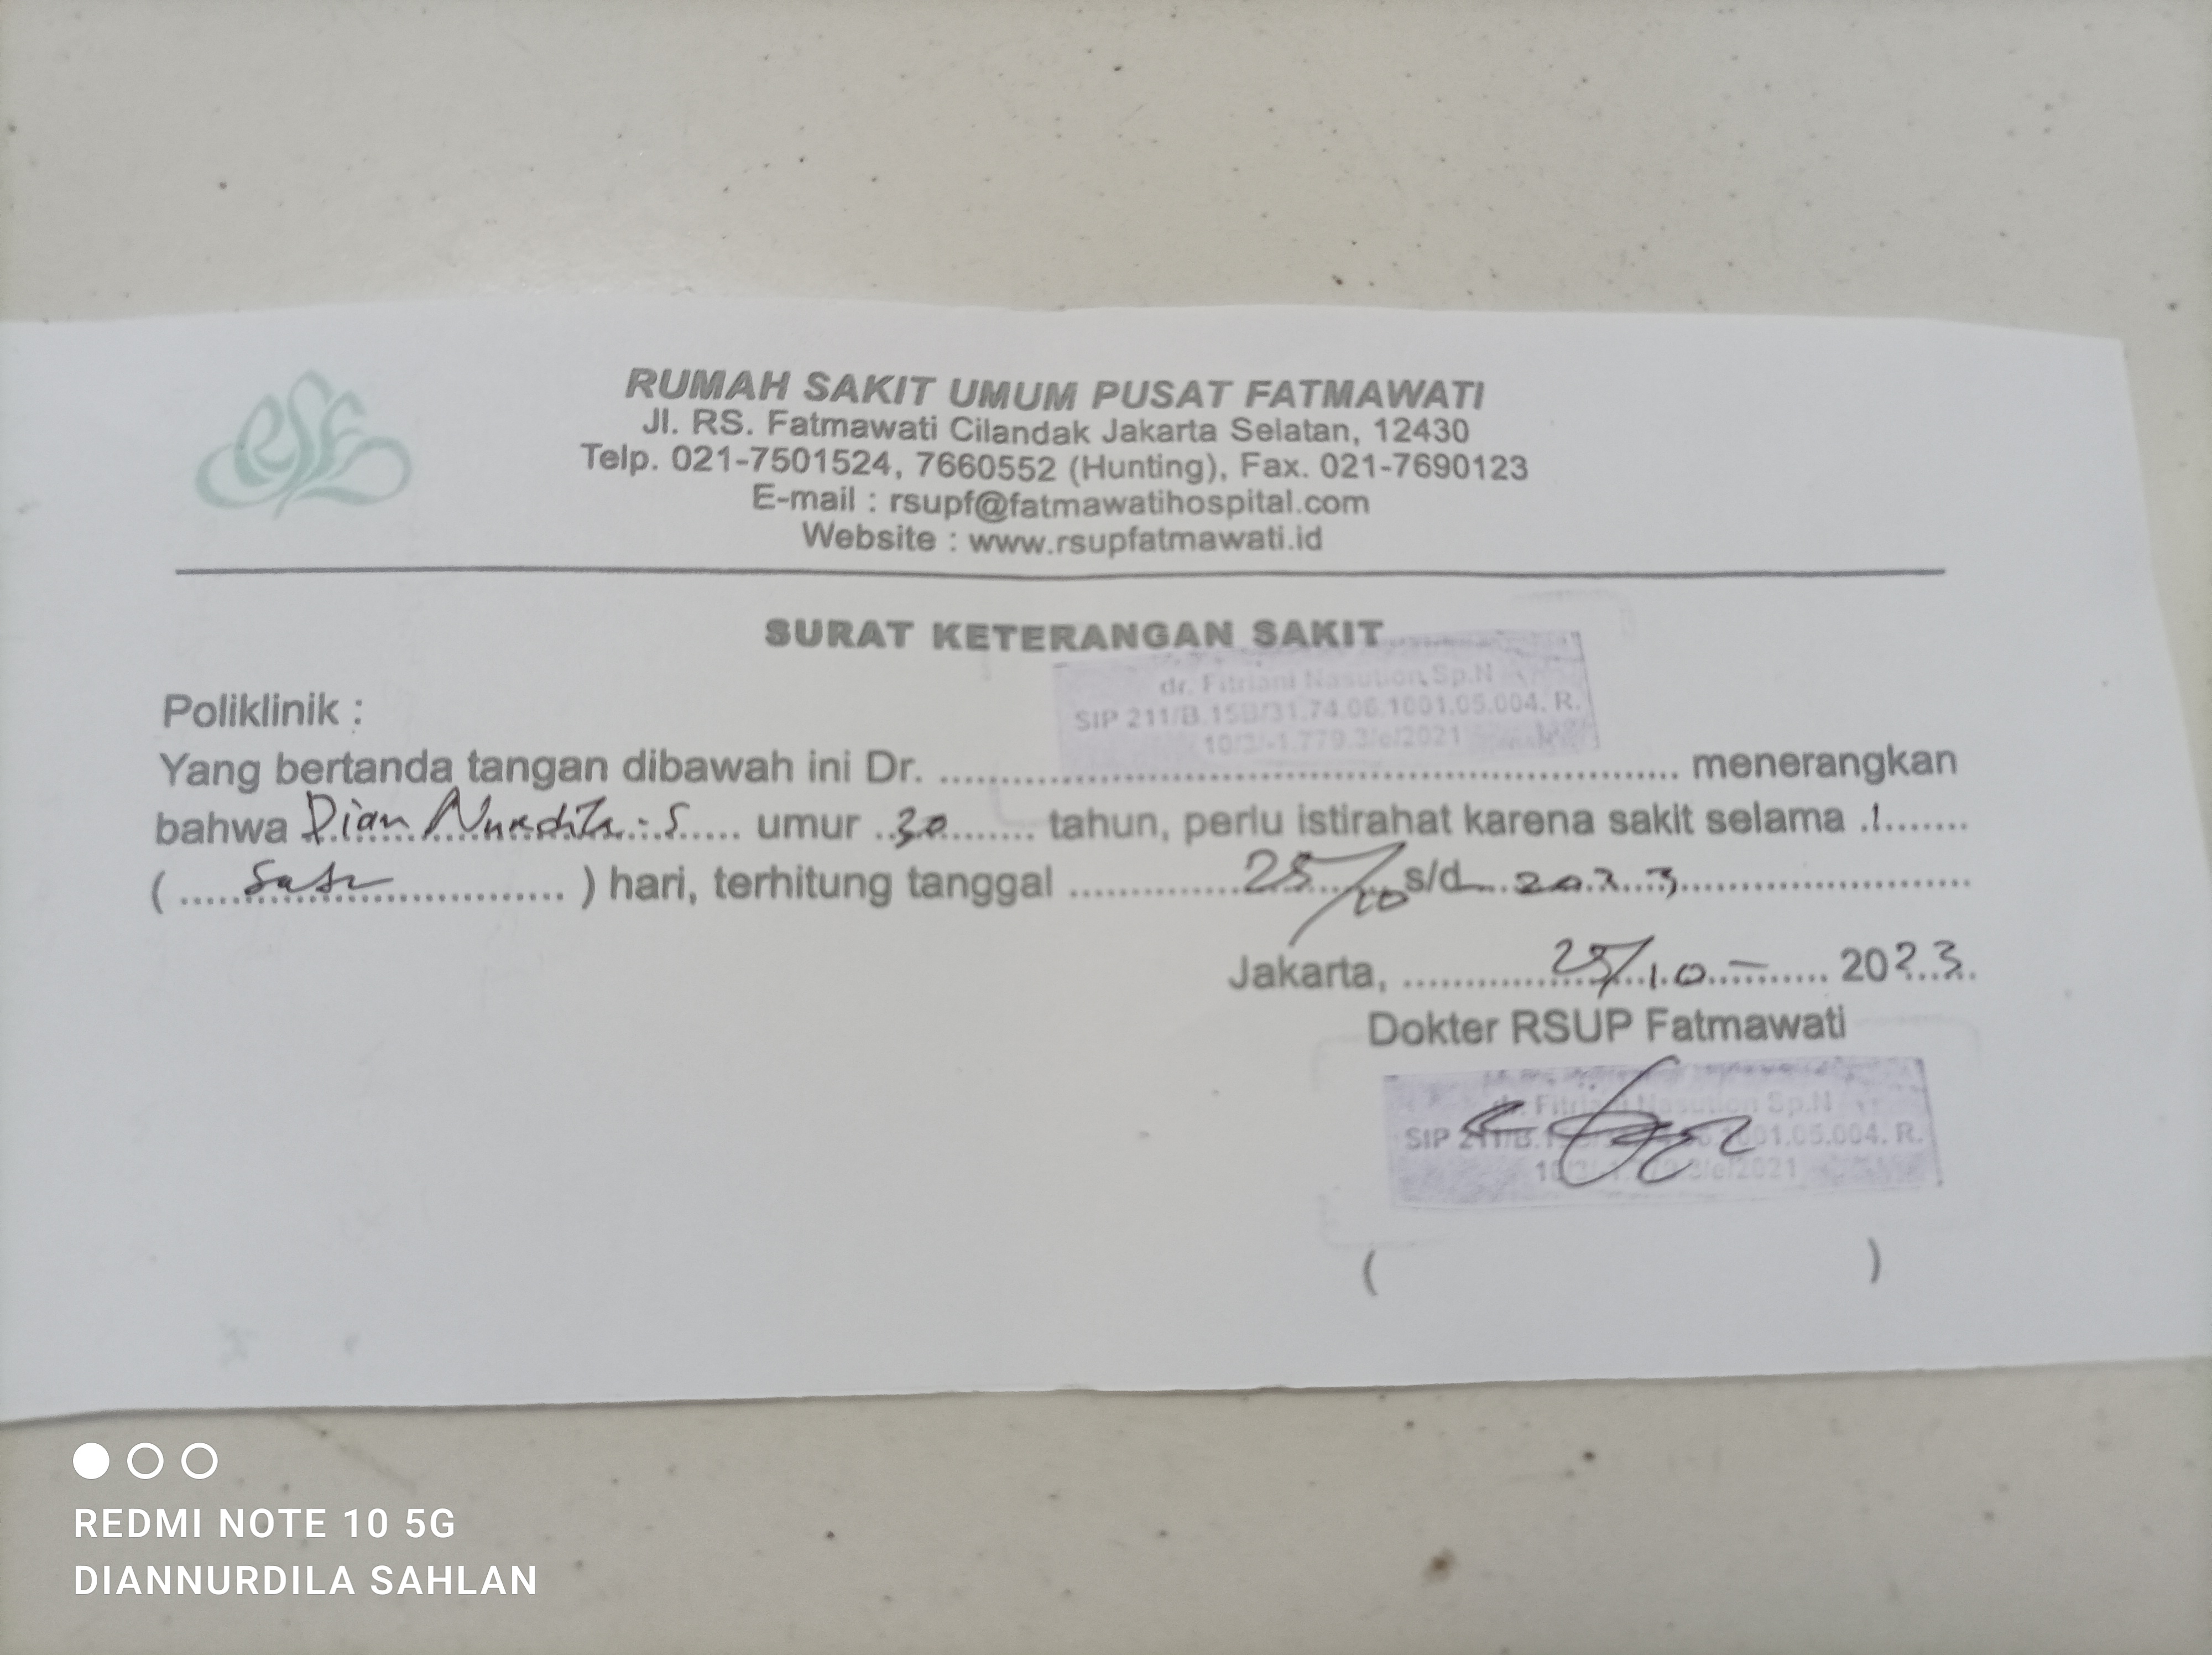 RSF
RUMAH SAKIT UMUM PUSAT FATMAWATI
Jl. RS. Fatmawati Cilandak Jakarta Selatan, 12430
Telp. 021-7501524, 7660552 (Hunting), Fax. 021-7690123
E-mail : rsupf@fatmawatihospital.com
Website : www.rsupfatmawati.id
SURAT KETERANGAN SAKIT
dr. Fitriani Nasution, Sp.N
SIP 211/B.15B/31.74.06.1001.05.004. R.
10/3/-1.779.3/e/2021
Poliklinik :
Yang bertanda tangan dibawah ini Dr. .................... menerangkan
bahwa Dian Nurdila. S umur 30 tahun, perlu istirahat karena sakit selama 1
( Satu ) hari, terhitung tanggal 25/10 s/d 2023
Jakarta, 25/10 - 2023
Dokter RSUP Fatmawati
dr. Fitriani Nasution Sp.N
SIP 211/B. 1001.05.004. R.
10/3/-1.779.3/e/2021
( )
REDMI NOTE 10 5G
DIANNURDILA SAHLAN